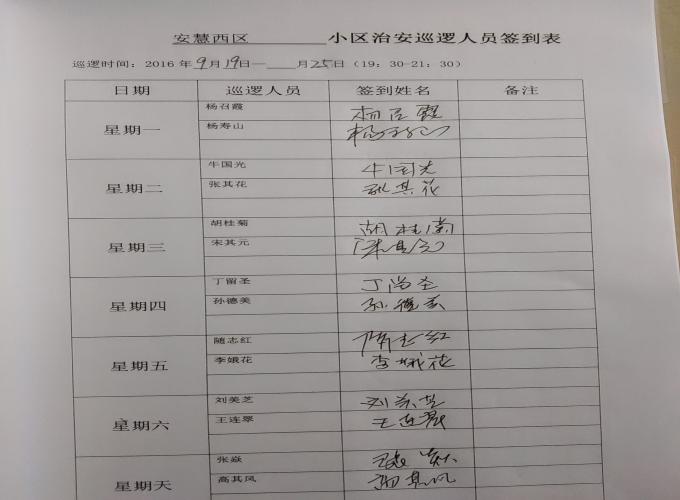 安慧西区 小区治安巡逻人员签到表
巡逻时间：2016年9月19日— 月25日（19：30-21：30）
日期 巡逻人员 签到姓名 备注
星期一
杨召霞 杨召霞
杨寿山 杨寿山
星期二
牛国光 牛国光
张其花 张其花
星期三
胡桂菊 胡桂菊
宋其元 宋其元
星期四
丁留圣 丁尚圣
孙德美 孙德美
星期五
随志红 隋志红
李娥花 李娥花
星期六
刘美芝 刘美芝
王连翠 王连翠
星期天
张焱
高其凤 高其凤